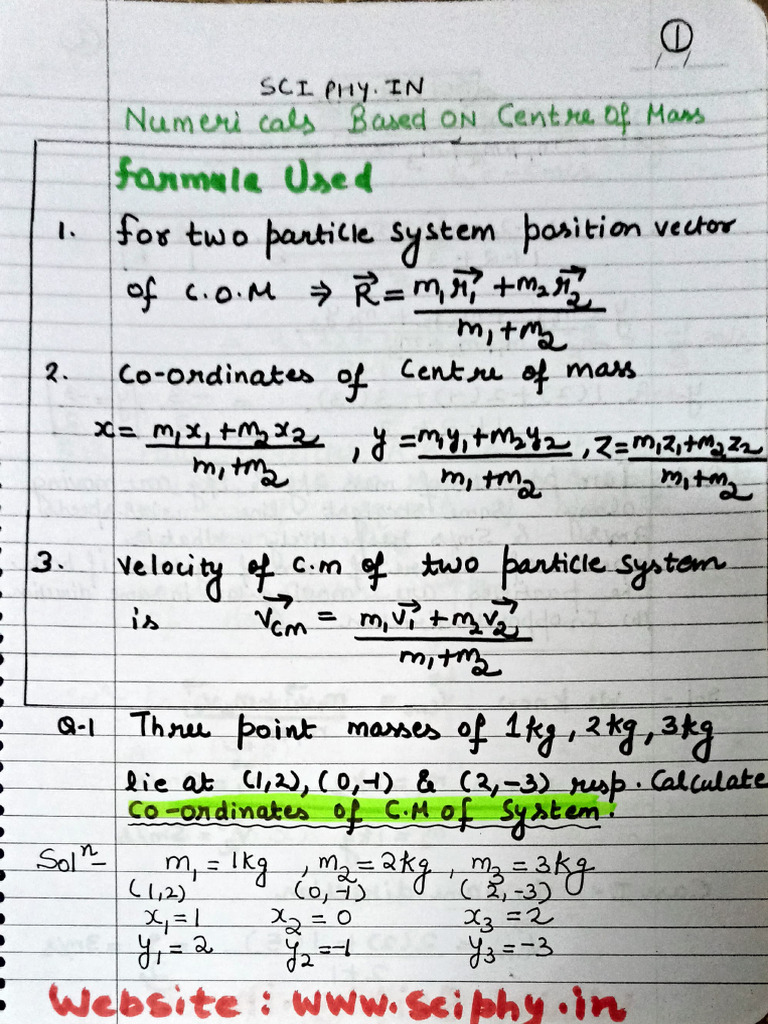 ①
SCI PHY.IN
Numericals Based ON Centre Of Mass
Formula Used
1. For two particle system position vector
of C.O.M ⇒ R⃗ = (m₁r₁⃗ + m₂r₂⃗) / (m₁+m₂)
2. Co-ordinates of Centre of mass
x = (m₁x₁+m₂x₂) / (m₁+m₂) , y = (m₁y₁+m₂y₂) / (m₁+m₂) , z = (m₁z₁+m₂z₂) / (m₁+m₂)
3. Velocity of C.m of two particle system
is V⃗cm = (m₁v₁⃗ + m₂v₂⃗) / (m₁+m₂)
Q-1 Three point masses of 1kg, 2kg, 3kg
lie at (1,2), (0,-1) & (2,-3) resp. Calculate
Co-ordinates of C.M of System.
Solⁿ- m₁ = 1kg , m₂ = 2kg , m₃ = 3kg
(1,2) (0,-1) (2,-3)
x₁=1 x₂=0 x₃=2
y₁=2 y₂=-1 y₃=-3
Website : www.sciphy.in